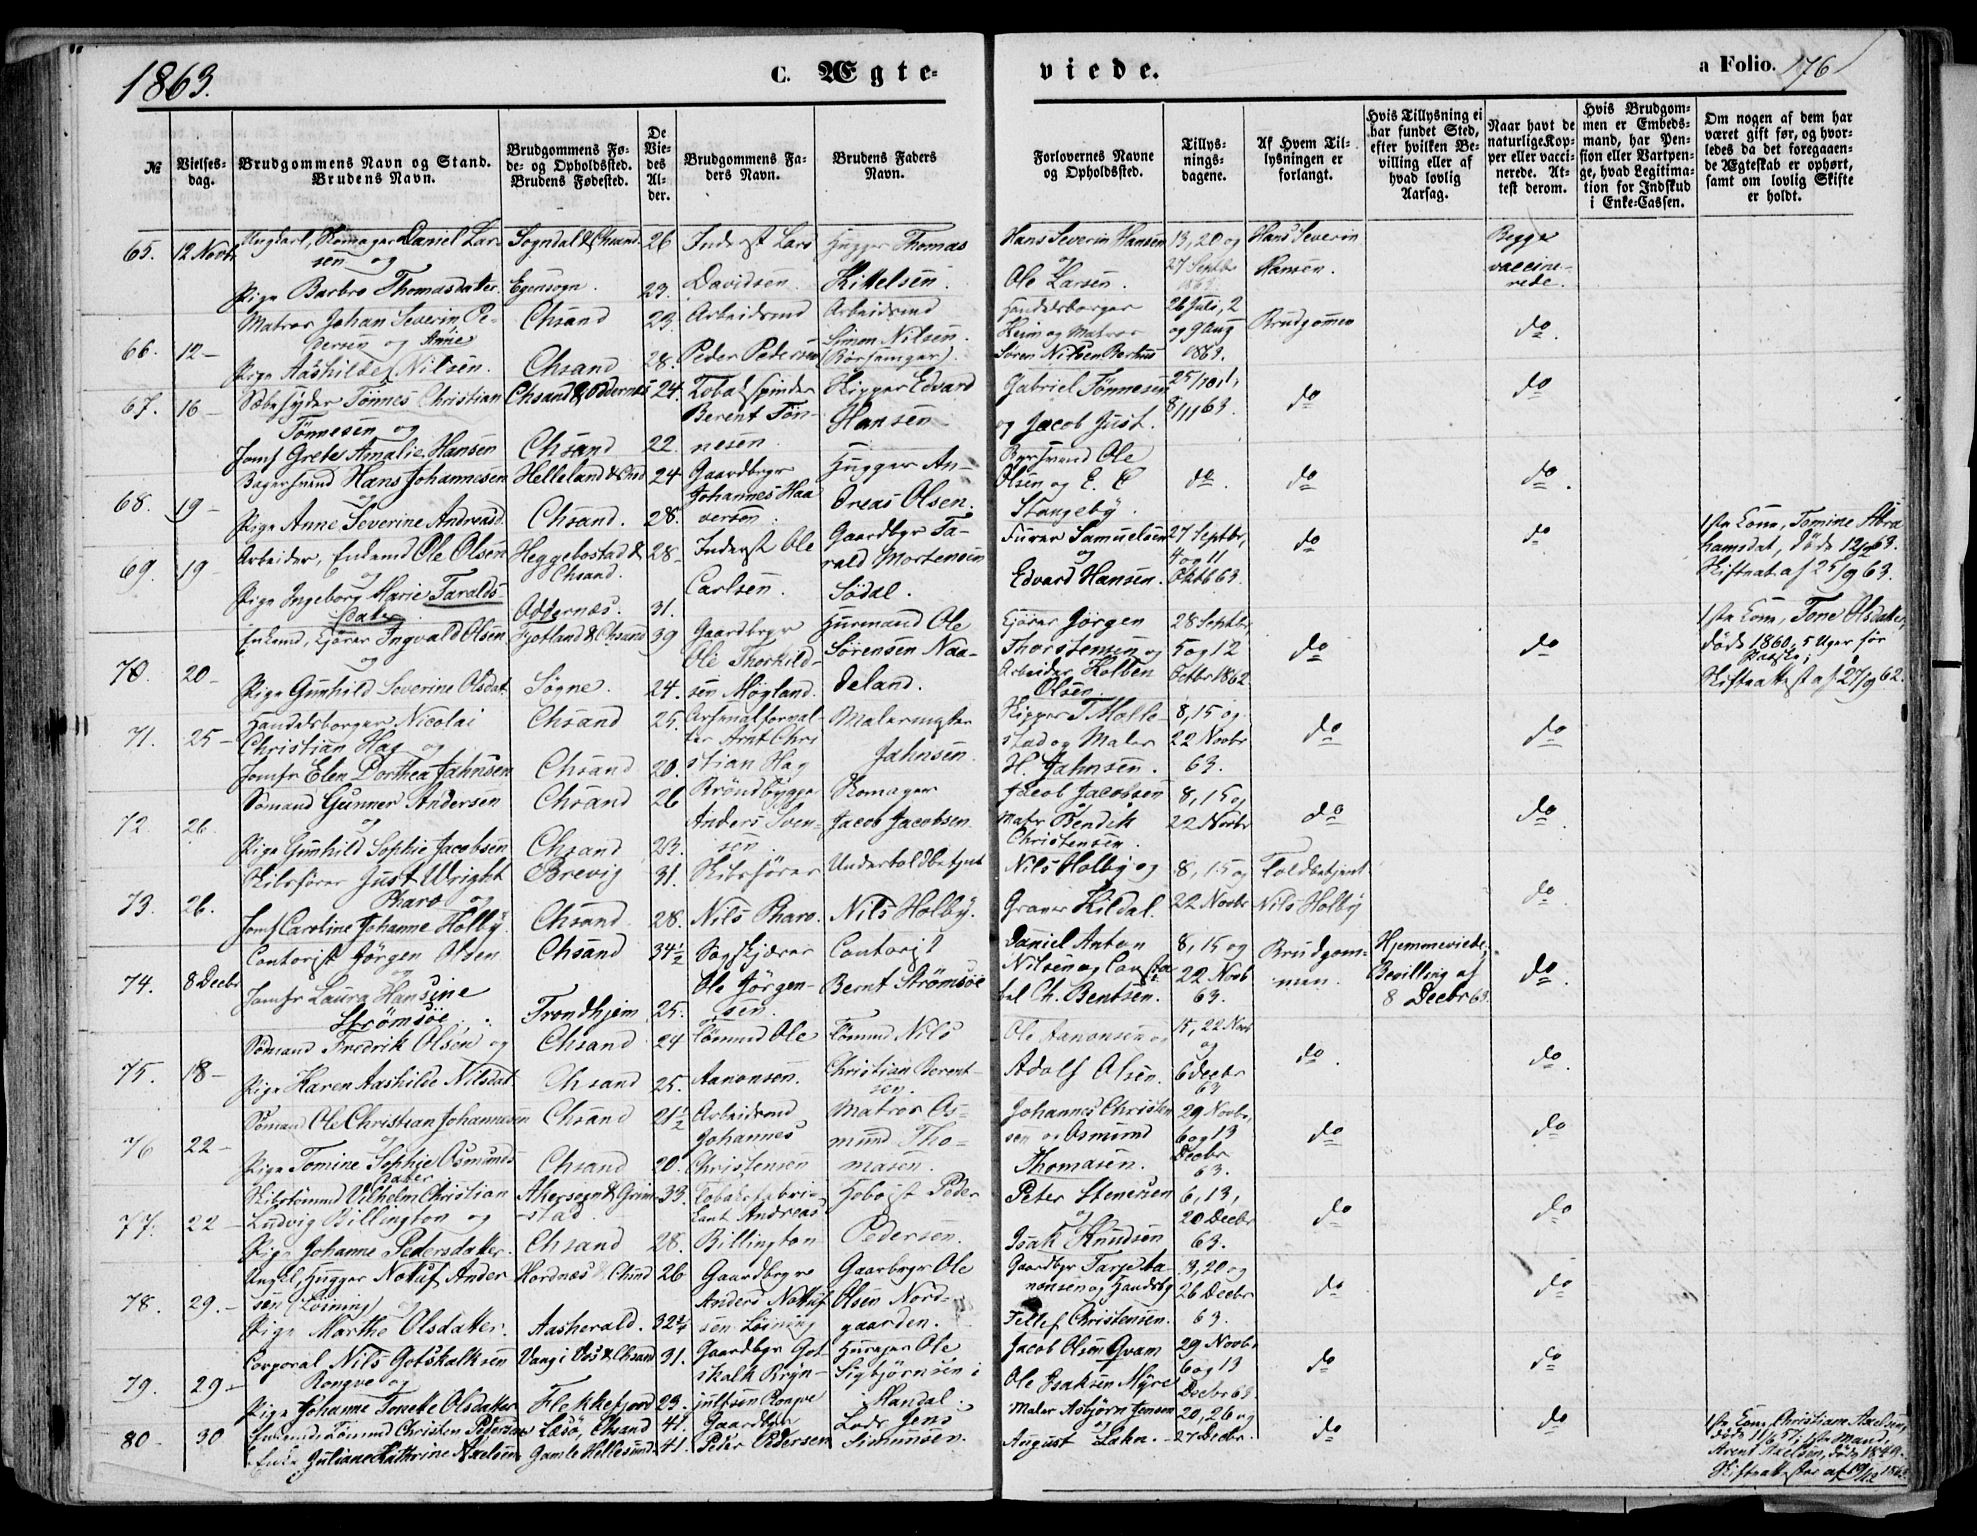 1863.
C. Ægte-
viede.
a Folio. 176
№
Vielses-
dag.
Brudgommens Navn og Stand.
Brudens Navn.
Brudgommens Fø-
de- og Opholdssted.
Brudens Fødested.
De
Vie-
des
Al-
der.
Brudgommens Fa-
ders Navn.
Brudens Faders
Navn.
Forlovernes Navne
og Opholdssted.
Tillys-
nings-
dagene.
Af Hvem Til-
lysningen er
forlangt.
Hvis Tillysning ei
har fundet Sted,
efter hvilken Be-
villing eller af
hvad lovlig
Aarsag.
Naar havt de
naturlige Kop-
per eller vacci-
nerede. At-
test derom.
Hvis Brudgom-
men er Embeds-
mand, har Pen-
sion eller Vartpen-
ge, hvad Legitima-
tion for Indskud
i Enke-Cassen.
Om nogen af dem har
været gift før, og hvor-
ledes da det foregaaen-
de Ægteskab er ophørt,
samt om lovlig Skifte
er holdt.
65. 12 Novbr. Ungkarl, Skomager Daniel Lar-
sen og
Pige Barbro Thomasdatter.
Sogndal & Chsand 26
Egensogn. 23.
Inderst Lars
Davidsen
Hugger Thomas
Kittelsen.
Hans Severin Hansen
og
Ole Larsen.
13, 20 og
27 Septbr
1863
Hans Severin
Hansen.
Begge
vaccine-
rede.
66. 12 – Matros Johan Severin Pe-
dersen og Anne
Pige Aashilde Nilsen.
Chsand 23.
Chsand 28.
Arbeidsmd
Peder Pedersen
Arbeidsmd
Simon Nilsen
Handelsborger
Heim og Matros
Søren Nilsen
26 Juli, 2
og 9 Aug
1863.
Brudgommen
do.
67. 16 – Sæbesyder Tönnes Christian
Tönnesen og
Jomf Grete Amalie Hansen
Chsand & Oddernes 24.
Chsand 22.
Tobakspinder
Berent Tön-
nesen.
Skipper Edvard
Hansen
Gabriel Tönnesen
og Jacob Just.
25/10, 1,
8/11 63.
do
do
68. 19 – Bagersvend Hans Johannesen
og
Pige Anne Severine Andreasd.
Helleland & Chsd 24
Chsand. 28.
Gaardbrgr
Johannes Haa
versen.
Hugger An-
dreas Olsen.
Ole
Olsen og E. E
Stangeby.
do.
do
do.
69. 19 – Arbeider, Enkemd Ole Olsen
og
Pige Ingeborg Marie Taralds-
datter
Heggebostad &
Chsand. 28–
Oddernæs. 31.
Inderst Ole
Carlsen.
Gaardbgr Ta-
rald Mortensen
Södal.
Furer Samuelsen
og
Edvard Hansen.
27 Septbr,
4 og 11
Oktb 63.
do
do
1ste Kone, Tomine Abra
hamsdat, døde 12/2 63.
Skifteat. af 25/9 63.
70. 20 – Enkemd, Kjører Ingvald Olsen
og
Pige Gunhild Severine Olsdat
Gyland & Chsand 39
Søgne. 24.
Gaardbrgr
Ole Thorkild-
sen Mögland.
Huusmand Ole
Sörensen Naa-
deland.
Kjører Jörgen
Thorstensen og
Arbeider Holben
Olsen.
28 Septbr,
5 og 12
Octbr 1862.
do
do
1ste Kone, Tone Olsdatter,
døde 1860, 5 Uger før
Paaske;
Skifteattest af 27/9 62.
71. 25 – Handelsborger Nicolai
Christian Hag og
Jomfr Elen Dorthea Jahnsen
Chsand 25.
Chsand 20.
Arsenalforval-
ter Arnt Chri
stian Hag
Malermester
Jahnsen.
Skipper T. Molle-
stad og Maler
H. Jahnsen.
8, 15 og
22 Novbr
63.
do
do
72. 26. Sömand Gunner Andersen
og
Pige Gunhild Sophie Jacobsen
Chsand 26
Chsand 23.
Bröndbygger
Anders Sven-
sen.
Skomager
Jacob Jacobsen.
Jacob Jacobsen
Matr Bendik
Christensen.
8, 15 og
22 Novbr
do
do.
73. 26. Skibsfører Just Wright
Pharo og
Jomf Caroline Johanne Holby.
Brevig 31.
Chsand. 28.
Skibsfører
Nils Pharo.
Undertoldbetjent
Nils Holby.
Nils Holby og
Graver Kildal.
8, 15 og
22 Novbr
Toldbetjent
Nils Holby
do.
74. 8 Decbr Contorist Jörgen Olsen
og
Jomfr Laura Hansine
Strömsöe.
Chsand 34½
Trondhjem 25.
Sagskjærer
Ole Jörgen-
sen.
Contorist
Bernt Strömsöe
Daniel Anton
Nilsen og Consta-
bel Ch. Bentsen.
8, 15 og
22 Novb
63.
Brudgom-
men.
Hjemmeviede,
Bevilling af
8 Decbr 63.
do.
75. 18 – Sömand Fredrik Olsen og
Pige Karen Aashilde Nilsdat
Chsand 24
Chsand 25.
Tömmd Ole
Aanonsen.
Tömmd Nils
Christian Berent-
sen.
Ole Aanonsen og
Adolf Olsen.
15, 22 Novb
og
6 Decbr
63
do.
do.
76 22 – Sömand Ole Christian Johannesen
og
Pige Tomine Sophie Osmunds-
datter
Chsand 21½
Chsand 20.
Arbeidsmd
Johannes
Christensen
Matros Os-
mund Tho-
masen.
Johannes Christen
sen og Osmund
Thomasen.
29 Novbr,
6 og 13
Decbr
63.
do
do.
77. 22 – Skibstömmd Vilhelm Christian
Ludvig Billington og
Pige Johanne Pedersdatter.
Akersogn & Grim-
stad 33.
Chsand 28.
Tobaksfabri-
kant Andreas
Billington
Hoboist Peder
Pedersen.
Peter Stenersen
og
Isak Knudsen
6, 13,
20 Decbr
63.
do
do.
78. 29. – Ungk, Hugger Notuf Ander
sen (Löining) og
Pige Marthe Olsdatter.
& Chsnd 26
Aasherald. 32¾
Gaardbrgr
Anders Notuf
sen Löining
Gaarbrgr Ole
Olsen Nord-
gaarden.
Gaardbgr Tarje Aa-
nonsen og Handelsbg
Tellef Christensen.
3, 20 og
26 Decbr
63.
do
do.
79. 29 – Corporal Nils Gotskalksen
Rongve og
Pige Johanne Tomette Olsdatter
Vang i Vos & Chsand 31.
Flekkefjord 23.
Gaardbgr Got-
skalk Bryn-
julfsen Rongve
Ole
Sigbjörnsen i
Mandal.
Jacob Olsen Qvam
Ole Isaksen Myre
29 Novbr
6 og 13
Decbr 63
do
do.
80 30 Enkemd, Tömmd Christen Pedersen
Enke Juliane Kathrine Axelsen
Læsö, Chsand 41.
Gamle Hellesund 41.
Gaardbgr
Peter Pedersen
Lods Jens
Simonsen.
Maler Asbjörn Jensen
og
August Lahn.
20, 26 og
27 Decbr.
do
do
1ste Kone, Christiane Axelsen,
døde 11/6 57; 1ste Mand,
Arent Axelsen, døde 1849.
Skifteattester af 19/12 1863